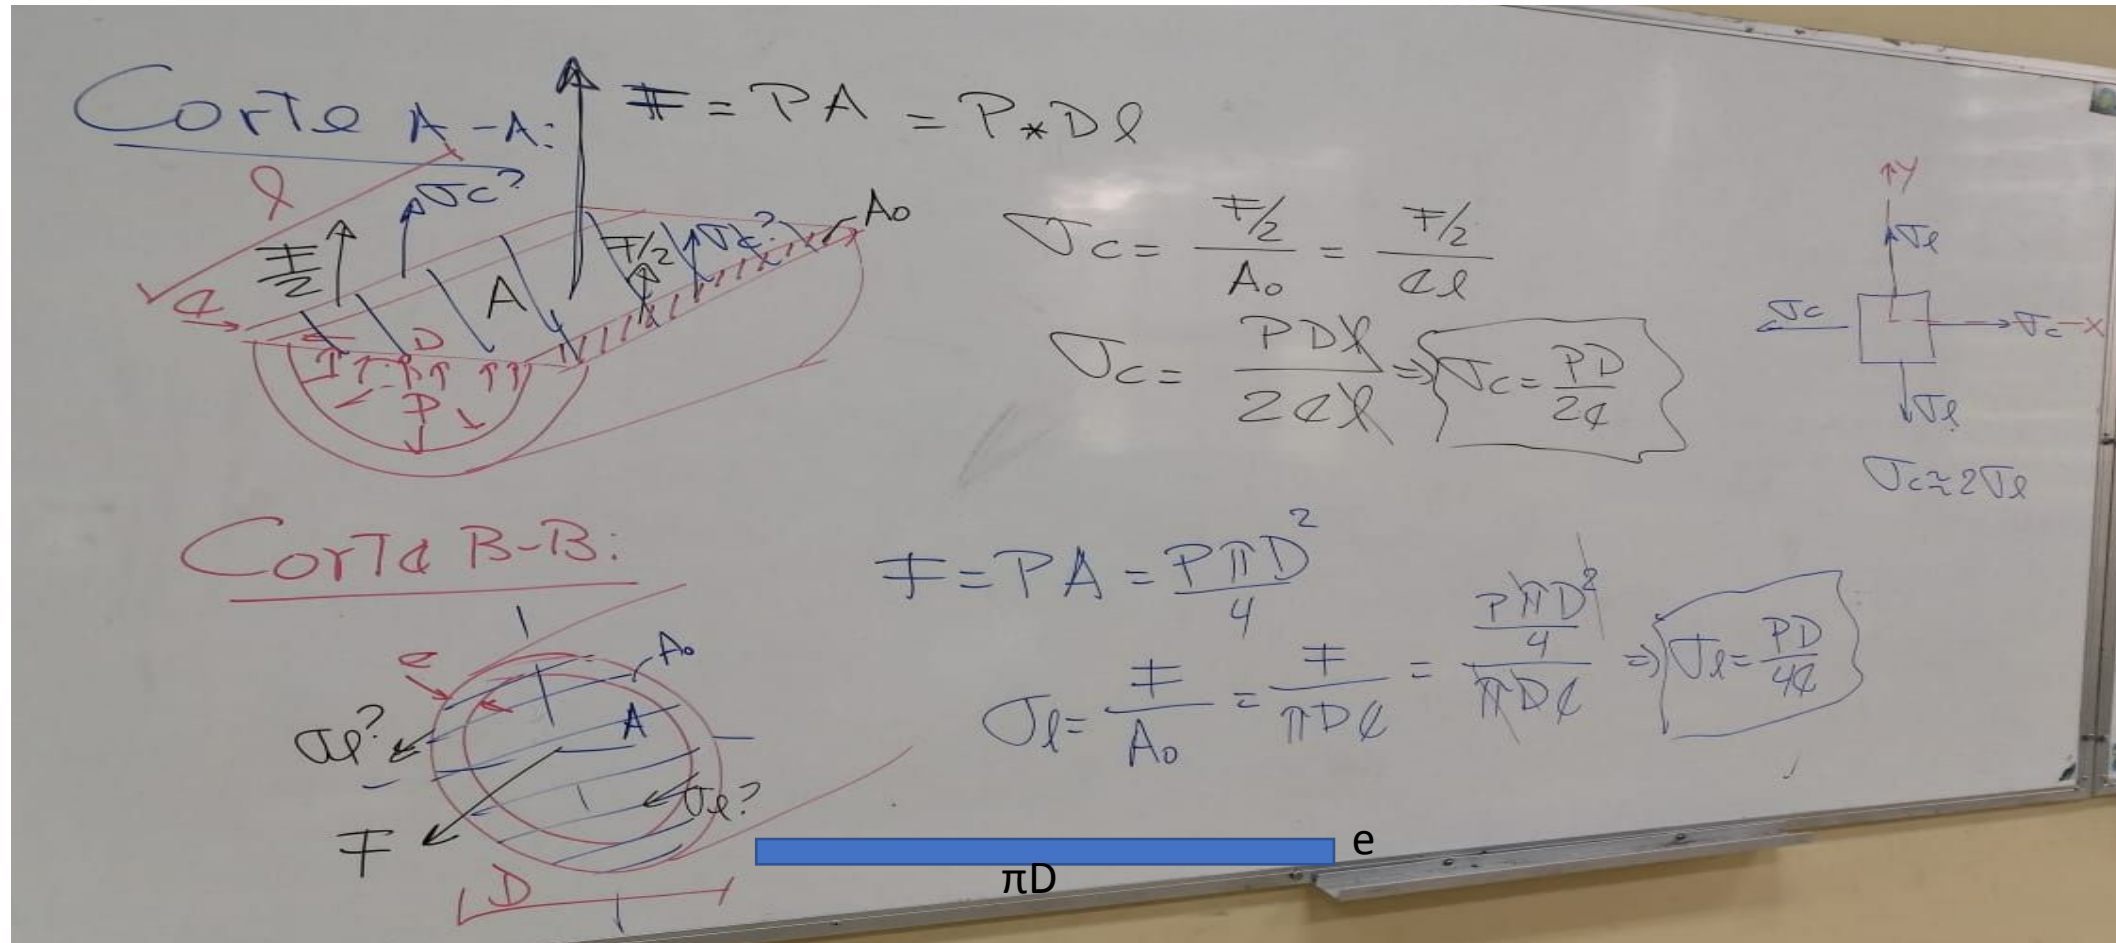 Corte A-A:
F = PA = P*Dl
l
σc?
F/2
F/2
σc?
A0
e
A
D
P
σc = F/2 / A0 = F/2 / el
σc = PDl / 2el ⇒ σc = PD / 2e
Y
σl
σc
σc
X
σl
σc ≈ 2σl
Corte B-B:
F = PA = PπD² / 4
e
A0
A
σl?
σl?
F
D
σl = F / A0 = F / πDe = PπD² / 4 / πDe ⇒ σl = PD / 4e
e
πD